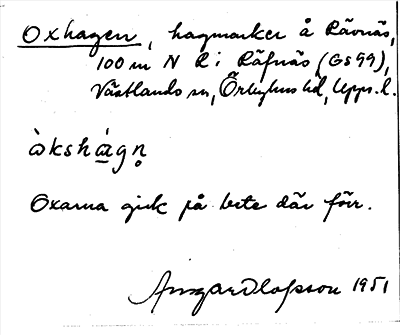 Oxhagen, hagmarker å Rävnäs,
100 m N R i Räfnäs (GS 99),
Västlands sn, Örbyhus hd, Upps. l.
ὼkshàgn̥
Oxarna gick på bete där förr.
Olofsson 1951